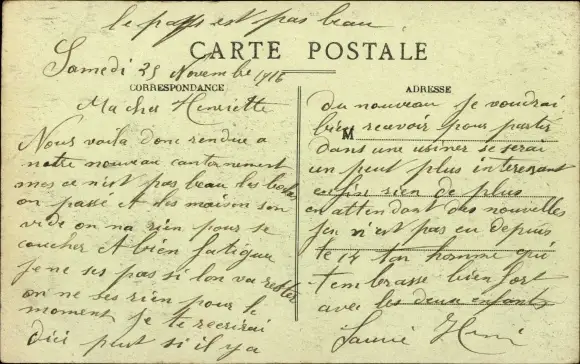 le pays est pas beau
CARTE POSTALE
Samedi 25 Novembre 1916
CORRESPONDANCE
Ma cher Henriette
Nous voila donc rendue a
notre nouveau cantonnement
mes ce n'est pas beau les boches
on passé et les maison son
vide on na rien pour se
coucher et bien fatigue
je ne ses pas si lon va rester
on ne ses rien pour le
moment je te recrirai
dici peut si il y a
ADRESSE
M
du nouveau je voudrai
bien recevoir pour partir
dans une usiner se serai
un peut plus interesant
enfin rien de plus
en attendant des nouvelles
jen n'est pas eu depuis
le 14 ton homme qui
t'embrasse bien fort
avec les deux enfants